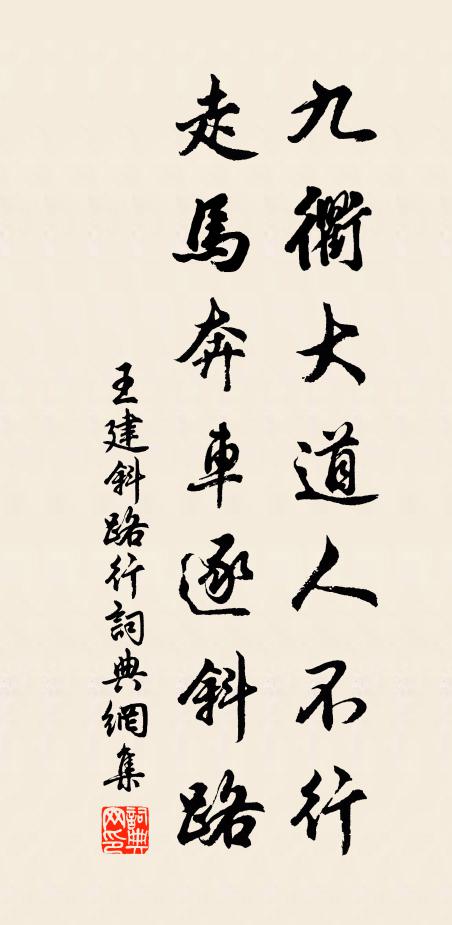 九衢大道人不行
走馬奔車逐斜路
王建斜路行詞典網集
詞典网印